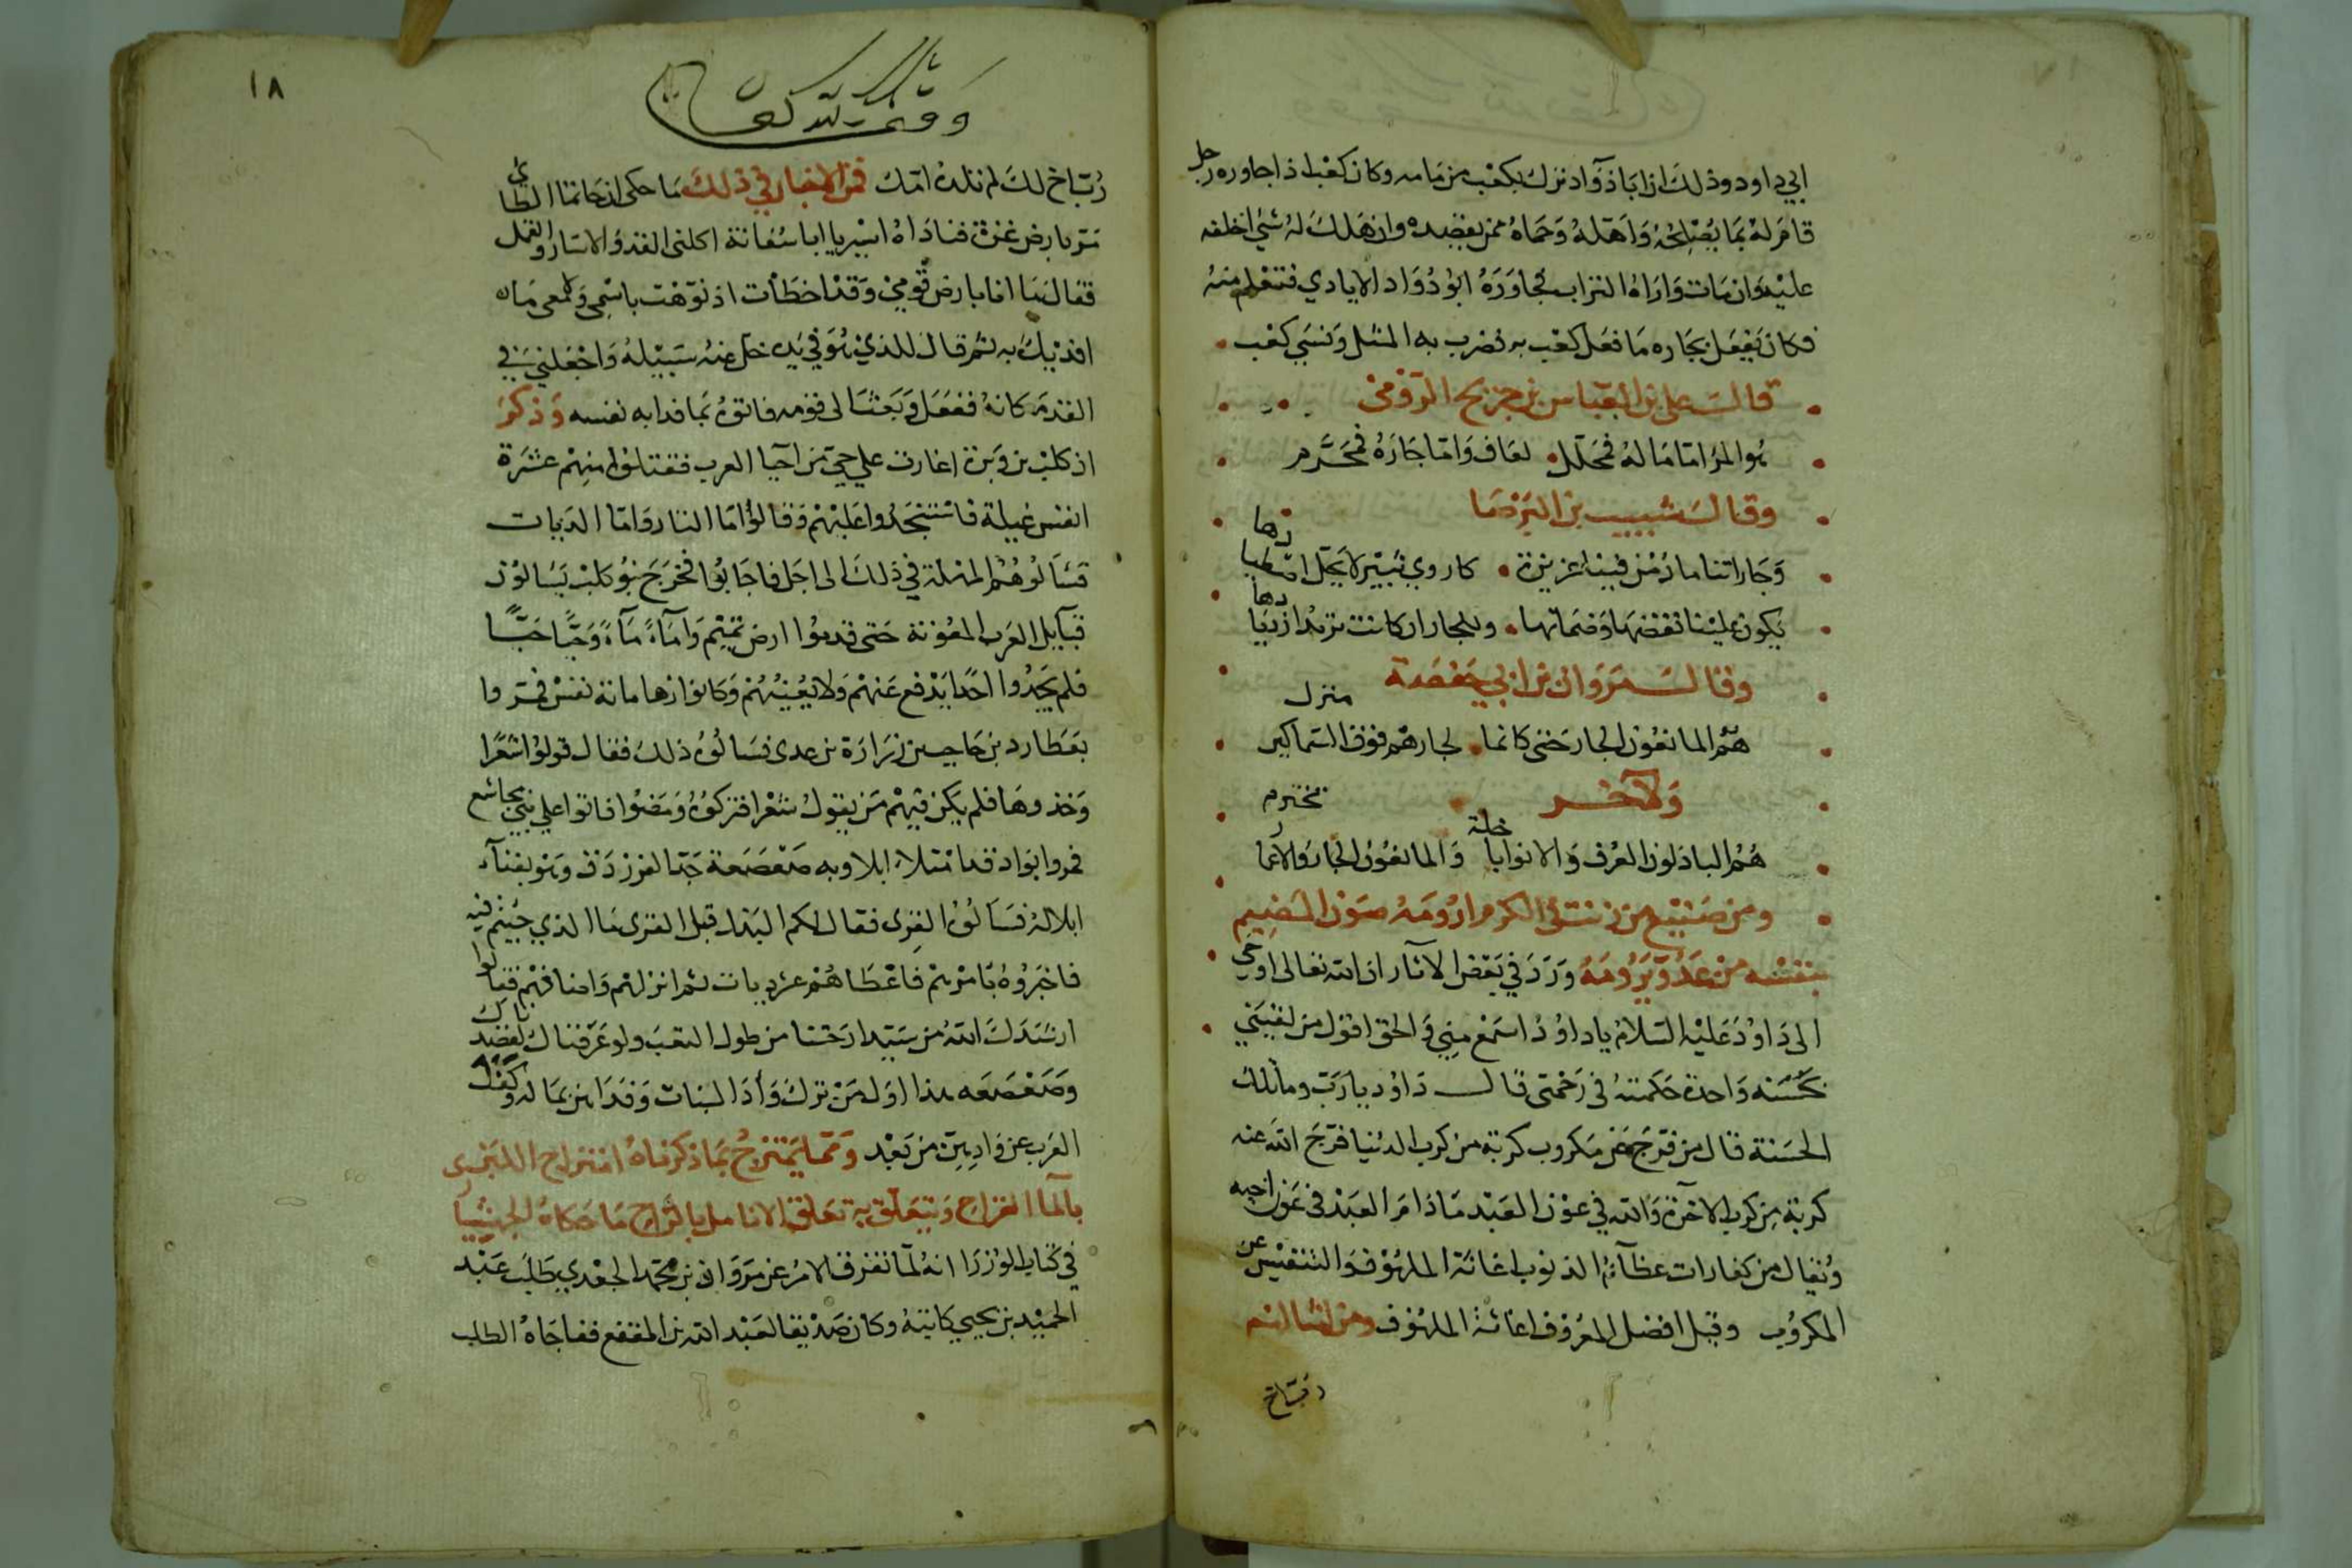 ابي داود وذلك ان اباذؤاد نزل بكعب بن مامه وكان كعب اذا جاوره رجل
قام له بما يصلحه وأهله وحماه ممن يقصده وان هلك له شئ اخلفه
عليه وان مات واراه التراب فجاوره ابو دواد الايادي فتعلم منه
فكان يفعل بجاره ما فعل كعب به فضرب به المثل ونسي كعب
قال علي بن العباس بن جريح الرومي
هو المرء اما ماله فمحلل لعاف واما جاره فمحرم
وقال شبيب بن البرصا
وجاراتنا ما دمن فينا عزيزة كاروي ثبير لا يحل اصطيادها
يكون علينا نقضها وضمانها وللجار ان كانت تريد ازديادها
وقال مروان بن ابي حفصة
هم المانعون الجار حتى كانما لجارهم فوق السماكين منزل
ولاخر
هم الباذلون العرف والانوايا خلة والمانعون الجار والانما مخترم
ومن صنيع من زينت الكرم ارومه صون المضيم
بنفسه من عدو يرومه ورد في بعض الآثار ان الله تعالى اوحى
الى داود عليه السلام ياداود اسمع مني والحق اقول من لقيني
بحسنه واحدة حكمته في رحمتي قال داود يارب وما تلك
الحسنة قال من فرج عن مكروب كربة من كرب الدنيا فرج الله عنه
كربة من كرب الاخرة والله في عون العبد ما دام العبد في عون اخيه
ويقال من كفارات عظائم الذنوب اغاثة الملهوف والتنفيس عن
المكروب وقيل افضل المعروف اغاثة الملهوف ومن امثالهم
رب اخ
١٨
وقف لله تعالى
رب اخ لك لم تلده امك فمن الاخبار في ذلك ما حكى ان حاتما الطائ
مر بارض عنزة فناداه اسير يا ابا سفانة اكلني القد والاسار والقمل
فقال ما انا بارض قومي وقد اخطأت اذ نوهت باسمي وليس معي مال
افديك به ثم قال للذي هو في يده خل عنه سبيله واجعلني في
القد مكانه ففعل وبعث الى قومه فاتوه بما فدا به نفسه وذكر
ان كلب بن وبرة اغارت علي حي من احيا العرب فقتلوا منهم عشرة
انفس غيلة فاستنجدوا عليهم وقالوا اما الثار واما الديات
فسألوهم المهلة في ذلك الى اجل فاجابوا فخرج بنو كلب يسالون
قبآيل العرب المعونة حتى قدموا ارض تميم وآماء مآء وحيا حيا
فلم يجدوا احدا يدفع عنهم ولا يعينهم وكانوا زها مائة نفس فمروا
بعطارد بن حاجب بن زرارة بن عدى فسالوه ذلك فقال قولوا شعرا
وخذوها فلم يكن فيهم من يقول شعرا فتركوه ومضوا فاتوا علي بني مجاشع
فمروا بواد قد امتلا ابلا وبه صعصعة جد الفرزدق وهو بفناء
ابلاله فسالوه القرى فقال لكم البذل قبل القرى ما الذي جيتم فيه
فاخبروه بامرهم فاعطاهم عشر ديات ثم انزلهم واضافهم فقالوا
ارشدك الله من سيد ارحتنا من طول التعب ولو عرفناك لقصدناك
وصعصعه هذا اول من ترك وأد البنات وفداهن بماله وكف
العرب عن وادهن من بعد ومما يمتزج بما ذكرناه امتزاج اللبن
بالما القراح ويتعلق به تعلق الانامل بالراح ما حكاه الجهشيارى
في كتاب الوزرا انه لما تفرق الامر عن مروان بن محمد الجعدي طلب عبد
الحميد بن يحيى كاتبه وكان صديقا لعبد الله بن المقفع ففاجاه الطلب